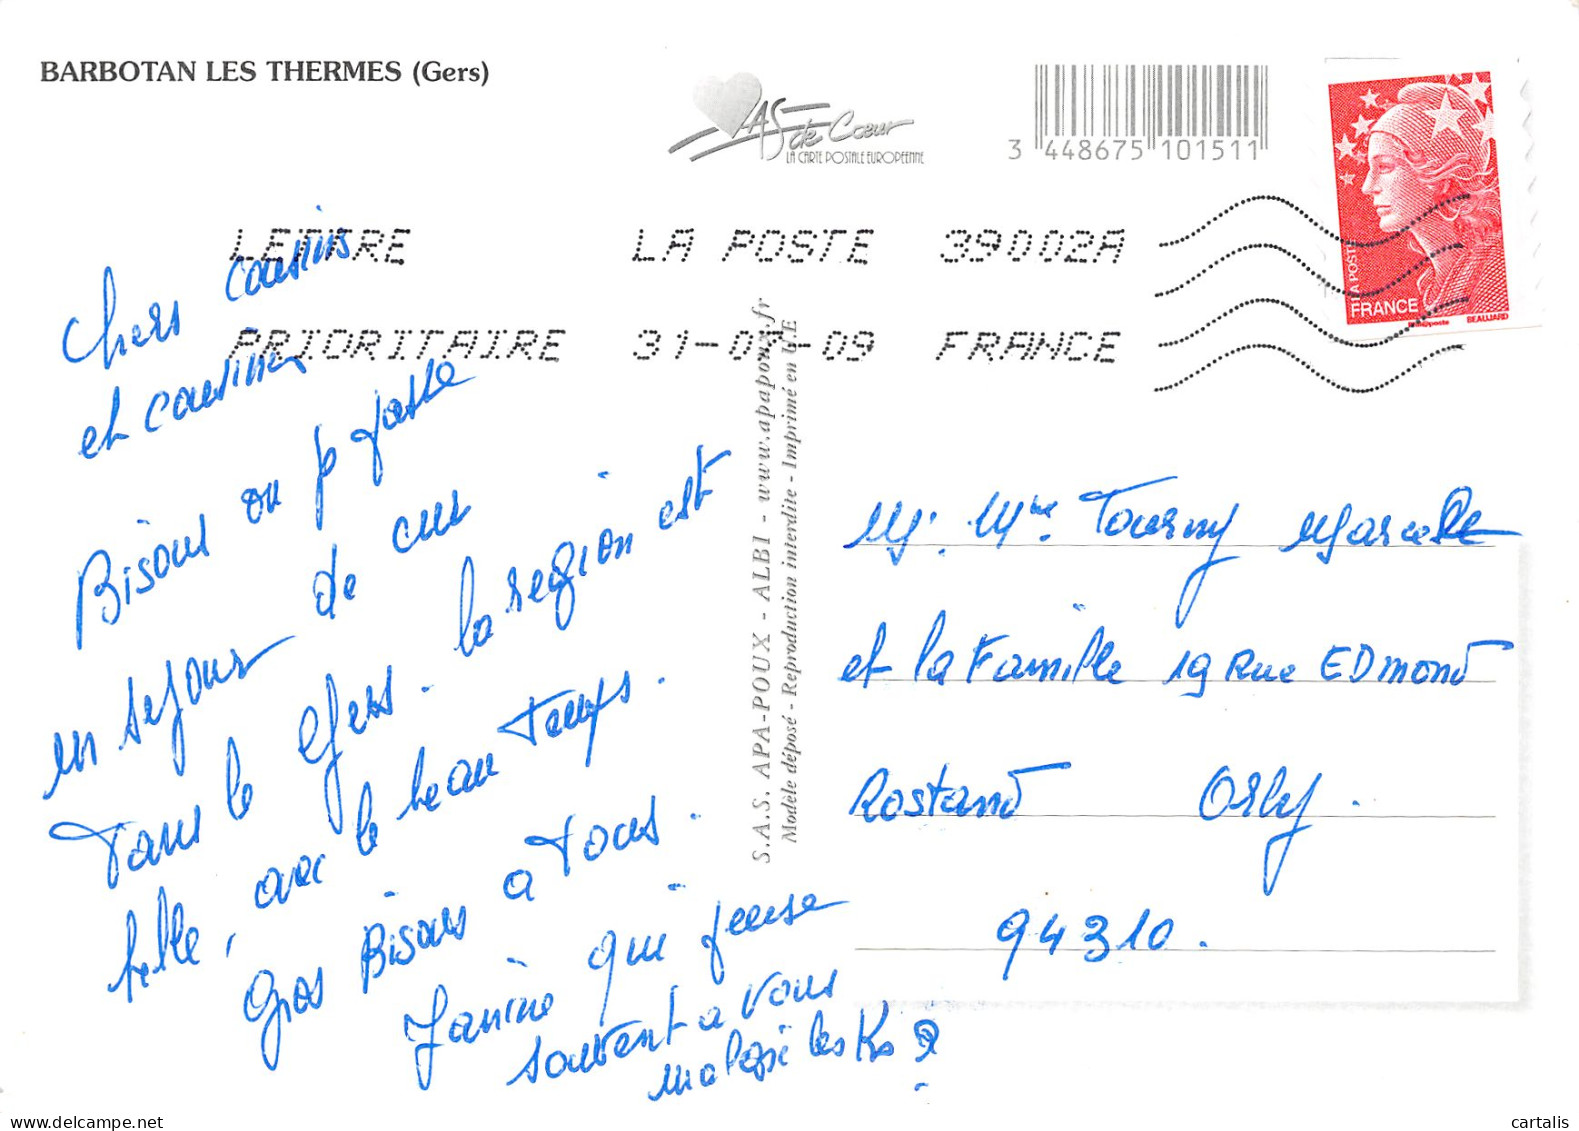 BARBOTAN LES THERMES (Gers)
AS de Cœur
LA CARTE POSTALE EUROPÉENNE
3 448675 101511
LA POSTE
FRANCE
Phil@poste BEAUJARD
LETTRE LA POSTE 39002A
PRIORITAIRE 31-07-09 FRANCE
Chers cousins
et cousines
Bisous ou je passe
en séjour de cur
dans le Gers. la region est
belle, avec le beau temps.
Gros Bisous a tous.
Janine qui pense
souvent a vous
malgré les Ks
S.A.S. APA-POUX - ALBI - www.apapoux.fr
Modèle déposé - Reproduction interdite - Imprimé en U.E
Mr. Mme Tourny Marcelle
et la Famille 19 Rue EDmond
Rostand Orly.
94310.
cartalis
www.delcampe.net